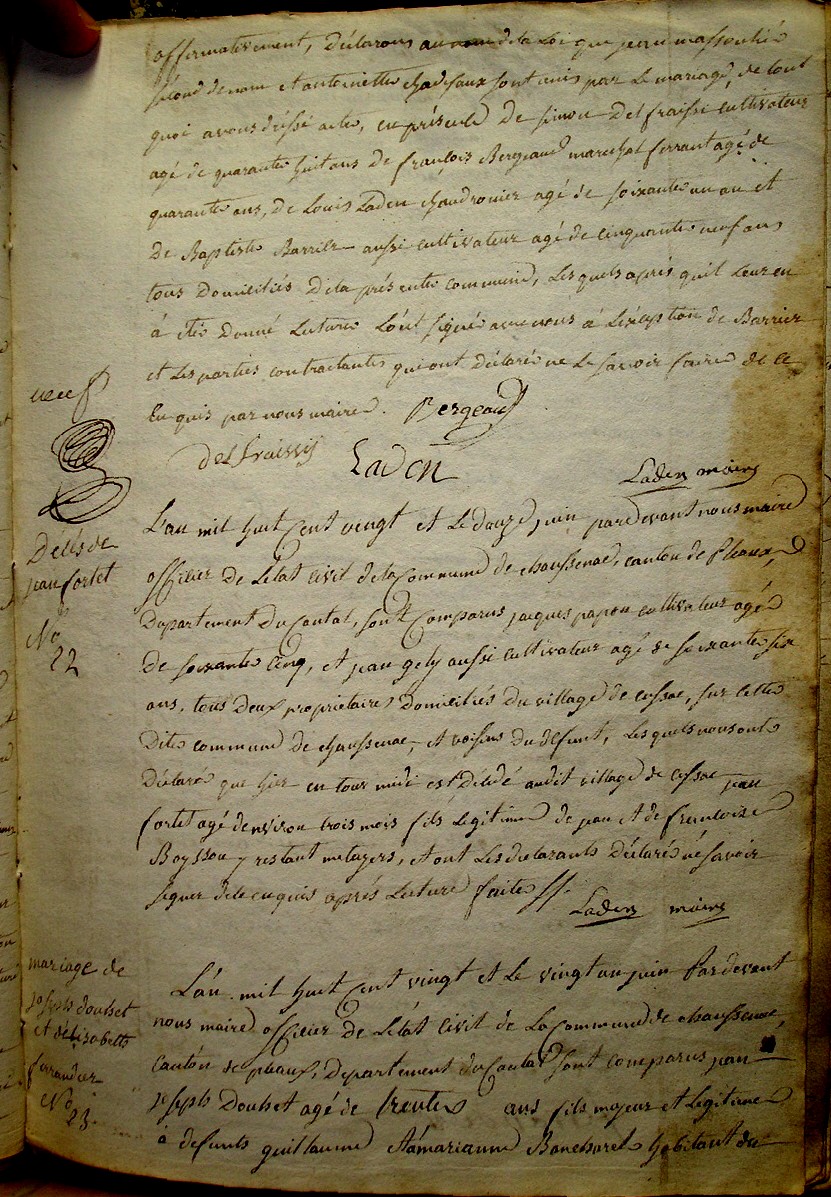 affirmativement, déclarons au nom de la Loi que jean massoulié
second de nom et antoinette chadefaux sont unis par le mariage, de tout
quoi avons dréssé acte, en présence de simon Delfraissi cultivateur
agé de quarante huit ans de françois Bergeaud marechal ferrant agé de
quarante ans, de Louis Laden chaudronier agé de soixante un an et
De Baptiste Barrier aussi cultivateur agé de cinquante neuf ans
tous Domiciliés De la présente commune, Lesquels aprés qu'il leur en
à été Donné Lecture L'ont signé avec nous à L'éxception de Barrier
et Les parties contractantes qui ont déclaré ne le savoir faire de ce
Enquis par nous maire. Bergeaud
delfraissy Laden
Laden maire
Décés de
jean fortet
No
22
L'an mil huit Cent vingt et Le douze juin pardevant nous maire
officier De L'etat Civil de la Commune de chaussenac, canton de Pleaux,
Departement Du Cantal, sont Comparus jacques papon cultivateur agé
De soixante Cinq, et jean gely aussi cultivateur agé de soixante six
ans, tous Deux propriétaires Domiciliés du village de cussac, sur cette
Dite commune de chaussenac, et voisins Du défunt, Lesquels nous ont
Déclaré que hier en tour midi est Décédé audit village de cussac jean
fortet agé d'environ trois mois fils Legitime de jean et de francoise
Boyssou y restant metayers, et ont Les déclarants Déclaré ne savoir
signer de ce enquis aprés Lecture faite
Laden maire
mariage de
joseph douhet
et d'élisabette
ferrandier
No
23.
L'an mil huit Cent vingt et Le vingt un juin Pardevant
nous maire officier de L'état Civil de La commune de chaussenac,
Canton de pleaux, Departement du Cantal sont comparus jean
joseph Douhet agé de trente ans fils majeur et Legitime
à defunts guillaume et à marianne Bancharel habitant du